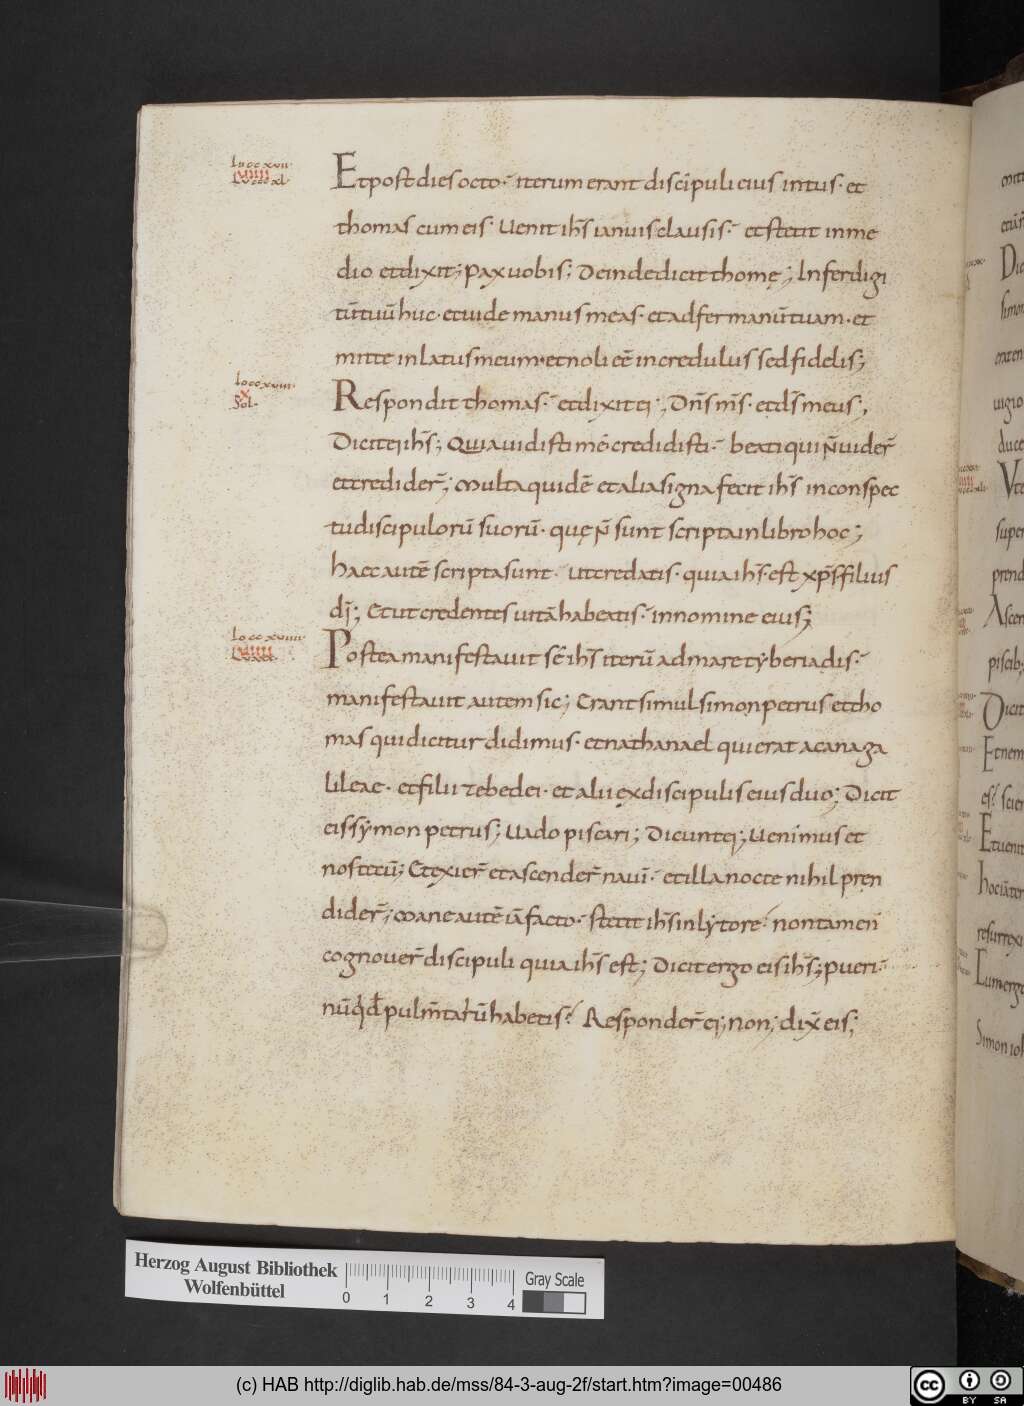 Io ccxvii·
VIIII
Lu cccxl·
Et post dies octo· iterum erant discipuli eius intus· et
thomas cum eis· Uenit ihs̄ ianuis clausis· et stetit in me
dio et dixit; Pax uobis; Deinde dicit thomę; Infer digi
tū tuū huc· et uide manus meas· et adfer manū tuam· et
mitte in latus meum· et noli eē incredulus sed fidelis;
Io ccxviii·
X
Sol·
Respondit thomas· et dixit ei; Dn̄s m̄s· et ds̄ meus;
Dicit ei ihs̄; Quia uidisti me· credidisti· beati qui n̄ uider̄
et credider̄; Multa quidē et alia signa fecit ihs̄ in conspec
tu discipulorū suorū· quę n̄ sunt scripta in libro hoc;
Haec autē scripta sunt· ut credatis· quia ihs̄· est xp̄s filius
dī; Et ut credentes uitā habeatis· in nomine eius;
Io ccxviiii·
VIIII
Postea manifestauit sē ihs̄ iterū ad mare tyberiadis·
manifestauit autem sic; Erant simul simon petrus et tho
mas qui dicitur didimus· et nathanael qui erat a cana ga
lileae· et filii zebedei· et alii ex discipulis eius duo; Dicit
eis symon petrus; Uado piscari; Dicunt ei; Uenimus et
nos tecū; Et exier̄ et ascender̄ nauī· et illa nocte nihil pren
dider̄; Mane autē iā facto· stetit ihs̄ in lytore· non tamen
cognouer̄ discipuli quia ihs̄ est; Dicit ergo eis ihs̄; pueri·
nūqd̄ pulm̄tariū habetis? Responder̄ ei; non; dix̄ eis;
Herzog August Bibliothek
Wolfenbüttel
0 1 2 3 4
Gray Scale
(c) HAB http://diglib.hab.de/mss/84-3-aug-2f/start.htm?image=00486
cc BY SA